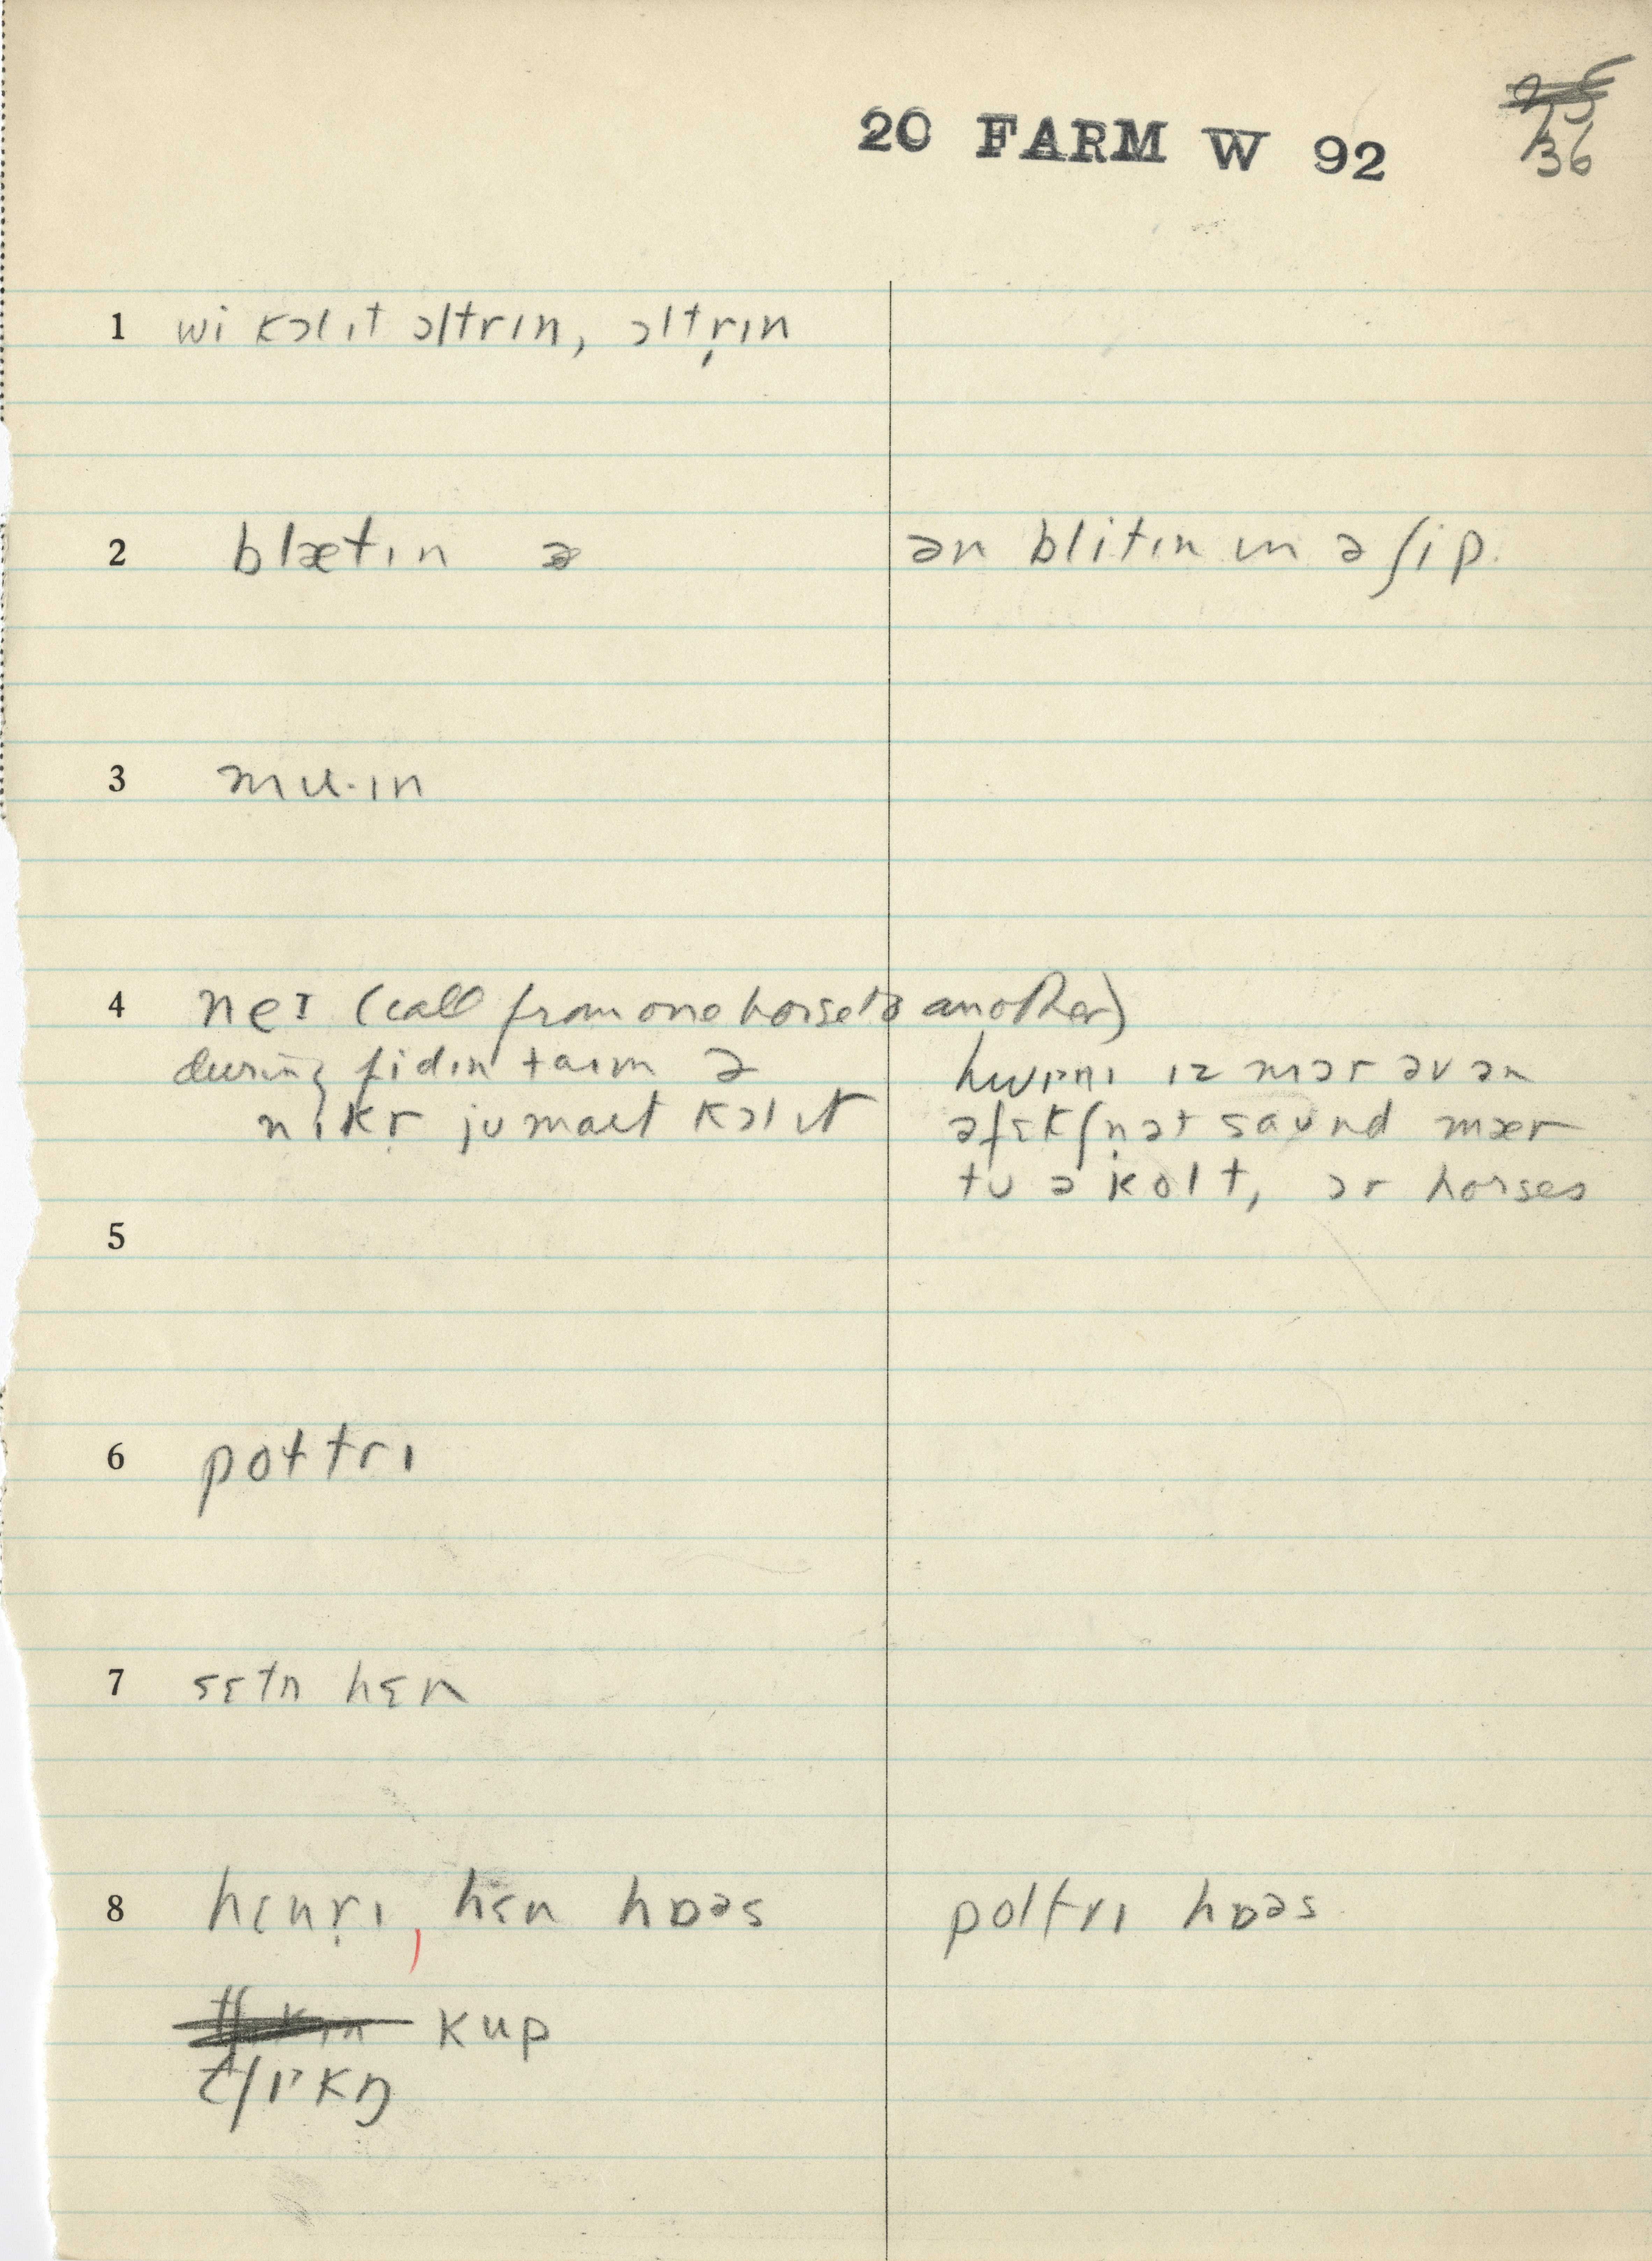 20 FARM W 92
36
1 wi kɔl ɪt ɔltrɪn, ɔltr̩ɪn
2 blætɪn ə
ən blitɪn ɪn ə ʃip.
3 mu·ɪn
4 neɪ (call from one horse to another)
during fidɪn taɪm ə
nɪkr̩ ju maɪt kɔl ɪt
hwɪnɪ ɪz mɔr əv ən
əfɛkʃn̩ət saʊnd mær
tʊ ə kolt, ɔr horses
5
6 poltrɪ
7 sɛtn hɛn
8 hɛnr̩ɪ, hɛn hɒəs
poltrɪ hɒəs
kup
tʃɪkŋ